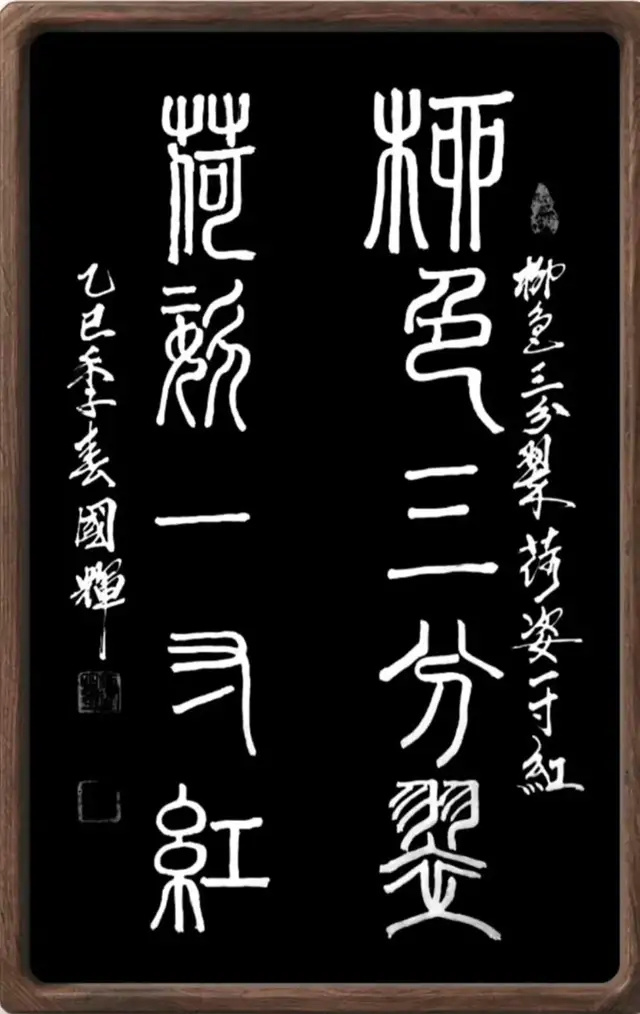 柳色三分翠荷姿一寸紅
柳色三分翠
荷姿一寸紅
乙巳季春國輝